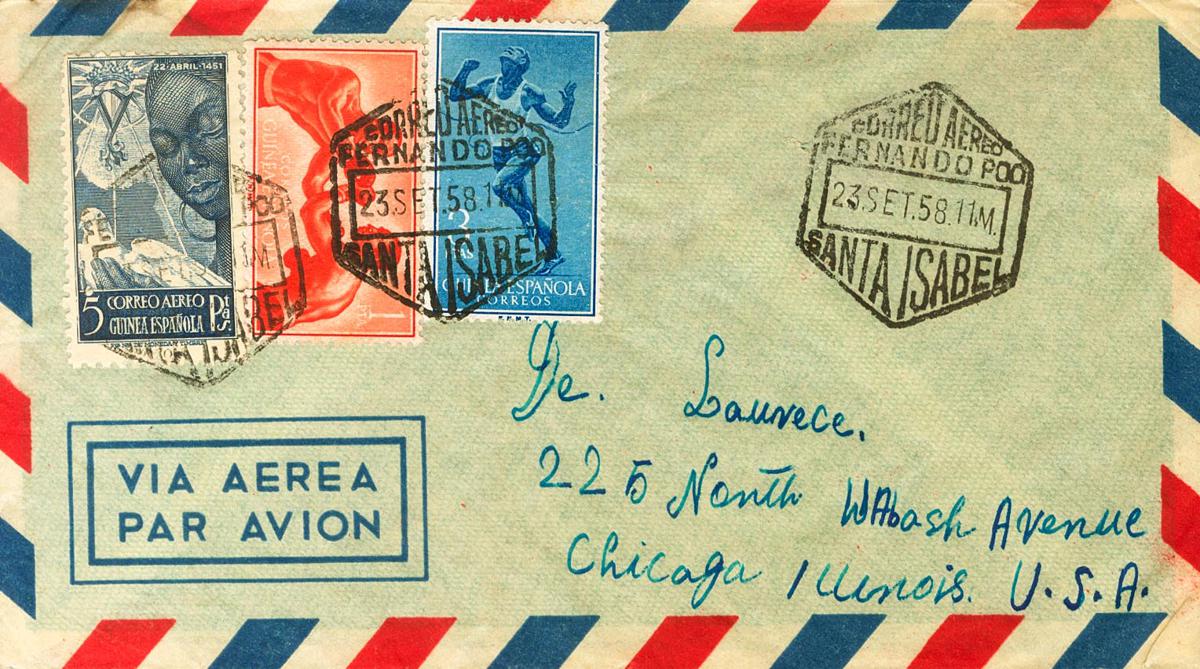 22·ABRIL·1451
5 CORREO AEREO Ptas.
GUINEA ESPAÑOLA
GUINEA
1
3
GUINEA ESPAÑOLA
CORREOS
F.N.M.T.
ISABEL
CORREO AEREO
FERNANDO POO
23.SET.58.11M.
SANTA ISABEL
CORREO AEREO
FERNANDO POO
23.SET.58.11M.
SANTA ISABEL
VIA AEREA
PAR AVION
De. Laurece.
225 North WAbash Avenue
Chicaga Illinois. U.S.A.